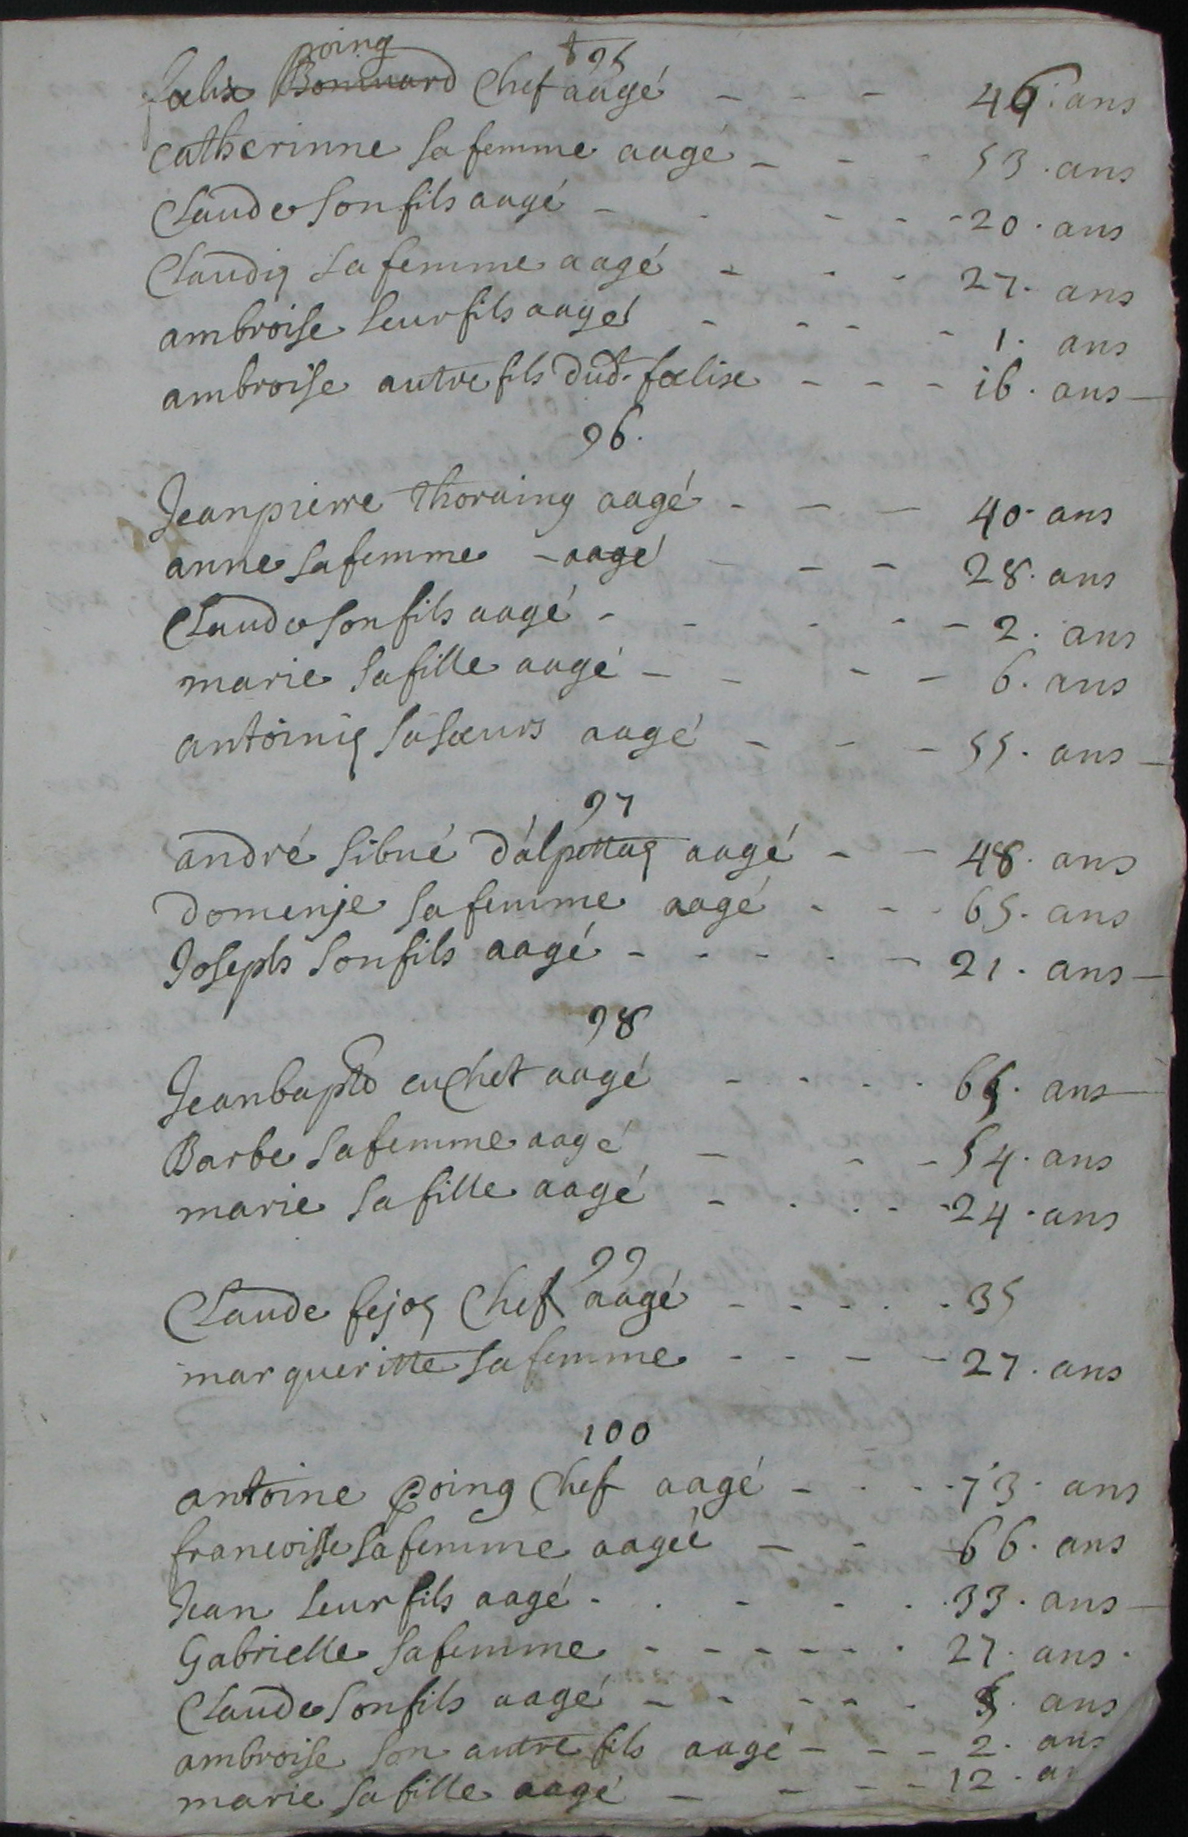 95
poing
fœlix Bonnuard Chef aagé - - - 46. ans
catherinne sa femme aagé - - - 53. ans
Claude son fils aagé - - - - - 20. ans
Claudiɋ sa femme aagé - - - 27. ans
ambroise leur fils aagé - - - - 1. ans
ambroise autre fils dud. fœlix - - - 16. ans
96.
Jeanpierre Thoraing aagé - - - 40. ans
anne sa femme - aagé - - - 28. ans
Claude son fils aagé - - - - - 2. ans
marie sa fille aagé - - - - 6. ans
antoiniɋ sa sœurs aagé - - - 55. ans
97
andré sibué d'alpettaɋ aagé - - 48. ans
domenje sa femme aagé - - - 65. ans
Joseph son fils aagé - - - - - 21. ans
98
Jeanbapte cuchet aagé - - - - 65. ans
Barbe sa femme aagé - - - 54. ans
marie sa fille aagé - - - - - 24. ans
99
Claude fejoɋ Chef aagé - - - - - 35
marqueritte sa femme - - - - 27. ans
100
antoine poing Chef aagé - - - - 73. ans
francoisse sa femme aagéé - - 66. ans
Jean leur fils aagé - - - - - 33. ans
Gabrielle sa femme - - - - - - 27. ans.
Claude son fils aagé - - - - - ans
ambroise son autre fils aagé - - - 2. ans
marie sa fille aagé - - - 12. an